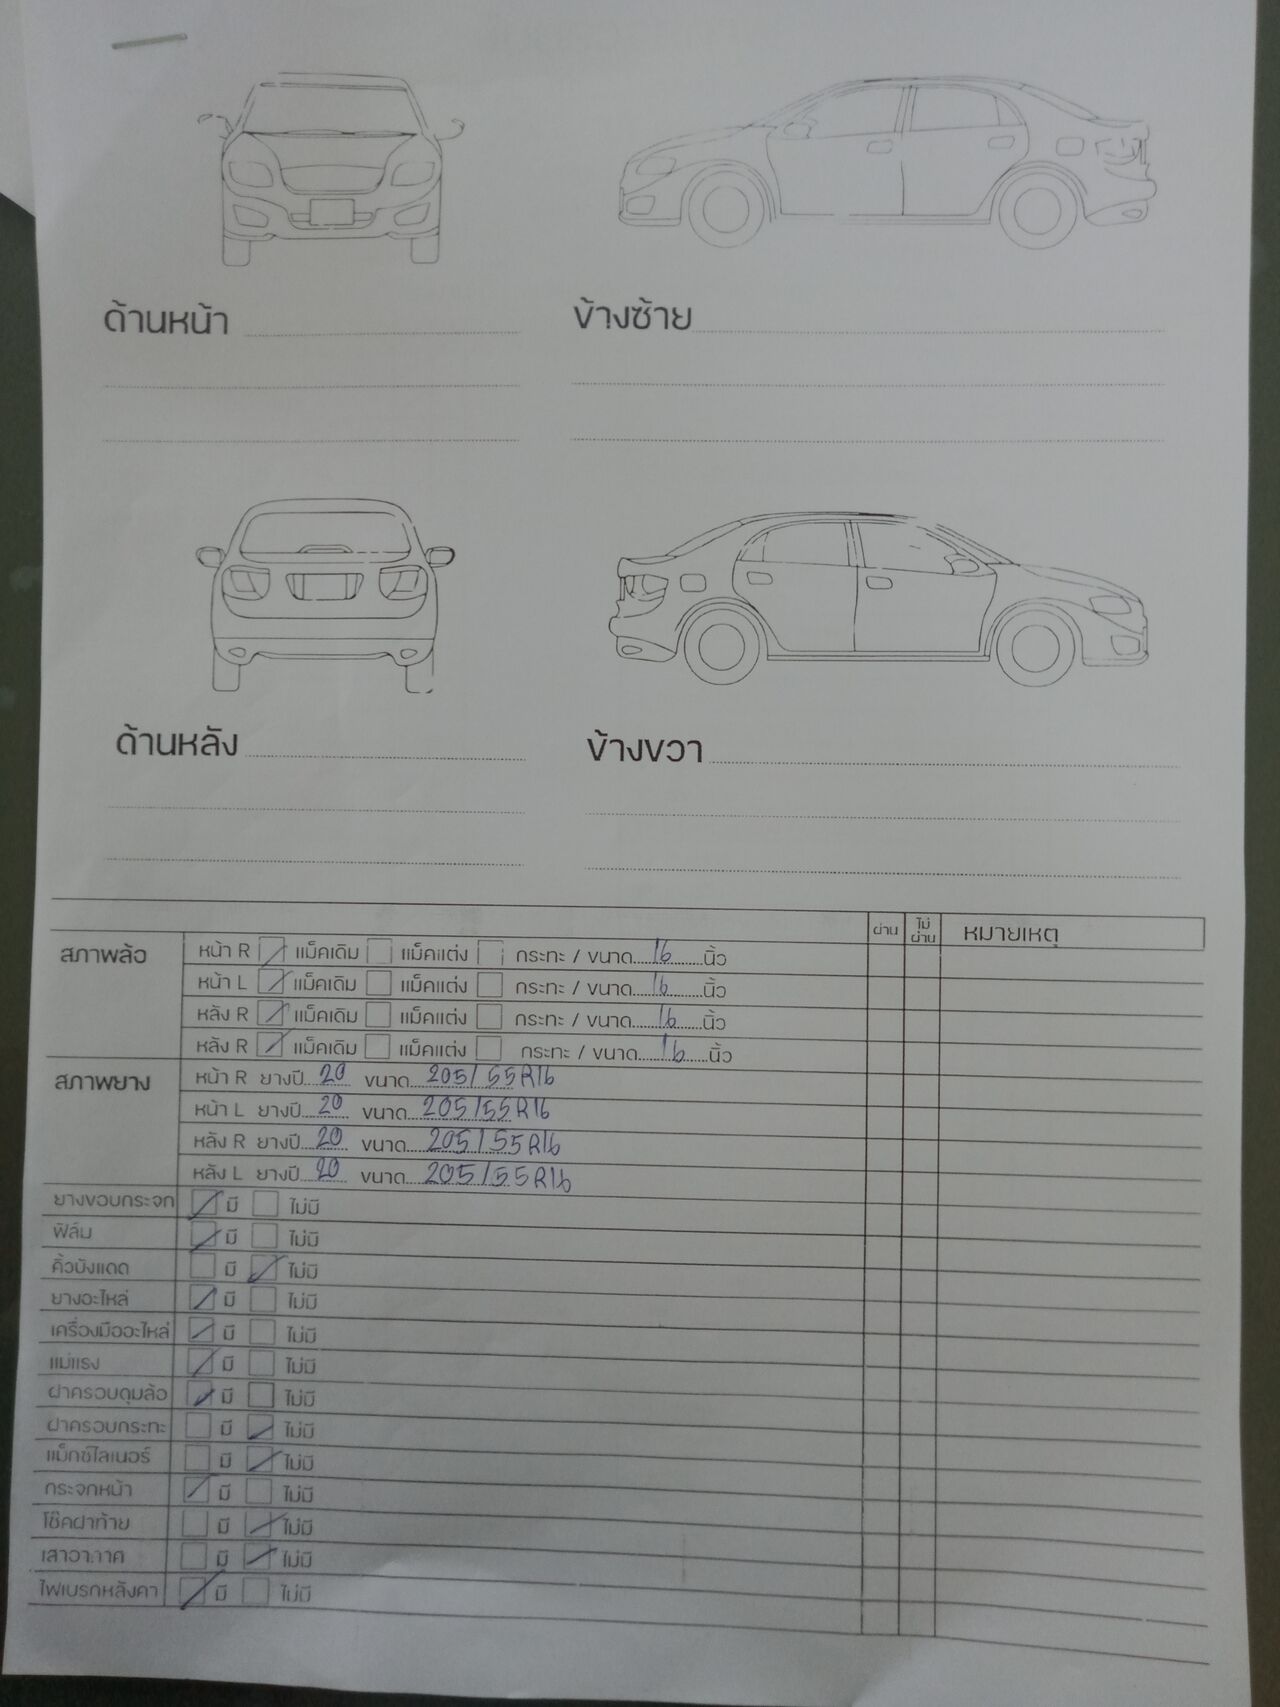 ด้านหน้า ข้างซ้าย
ด้านหลัง ข้างขวา
ผ่าน ไม่ผ่าน หมายเหตุ
สภาพล้อ หน้า R แม็คเดิม แม็คแต่ง กระทะ / ขนาด 16 นิ้ว
หน้า L แม็คเดิม แม็คแต่ง กระทะ / ขนาด 16 นิ้ว
หลัง R แม็คเดิม แม็คแต่ง กระทะ / ขนาด 16 นิ้ว
หลัง R แม็คเดิม แม็คแต่ง กระทะ / ขนาด 16 นิ้ว
สภาพยาง หน้า R ยางปี 20 ขนาด 205/55R16
หน้า L ยางปี 20 ขนาด 205/55R16
หลัง R ยางปี 20 ขนาด 205/55R16
หลัง L ยางปี 20 ขนาด 205/55R16
ยางขอบกระจก มี ไม่มี
ฟิล์ม มี ไม่มี
คิ้วบังแดด มี ไม่มี
ยางอะไหล่ มี ไม่มี
เครื่องมืออะไหล่ มี ไม่มี
แม่แรง มี ไม่มี
ฝาครอบดุมล้อ มี ไม่มี
ฝาครอบกระทะ มี ไม่มี
แม็กซ์ไลเนอร์ มี ไม่มี
กระจกหน้า มี ไม่มี
โช๊คฝาท้าย มี ไม่มี
เสาอากาศ มี ไม่มี
ไฟเบรกหลังคา มี ไม่มี